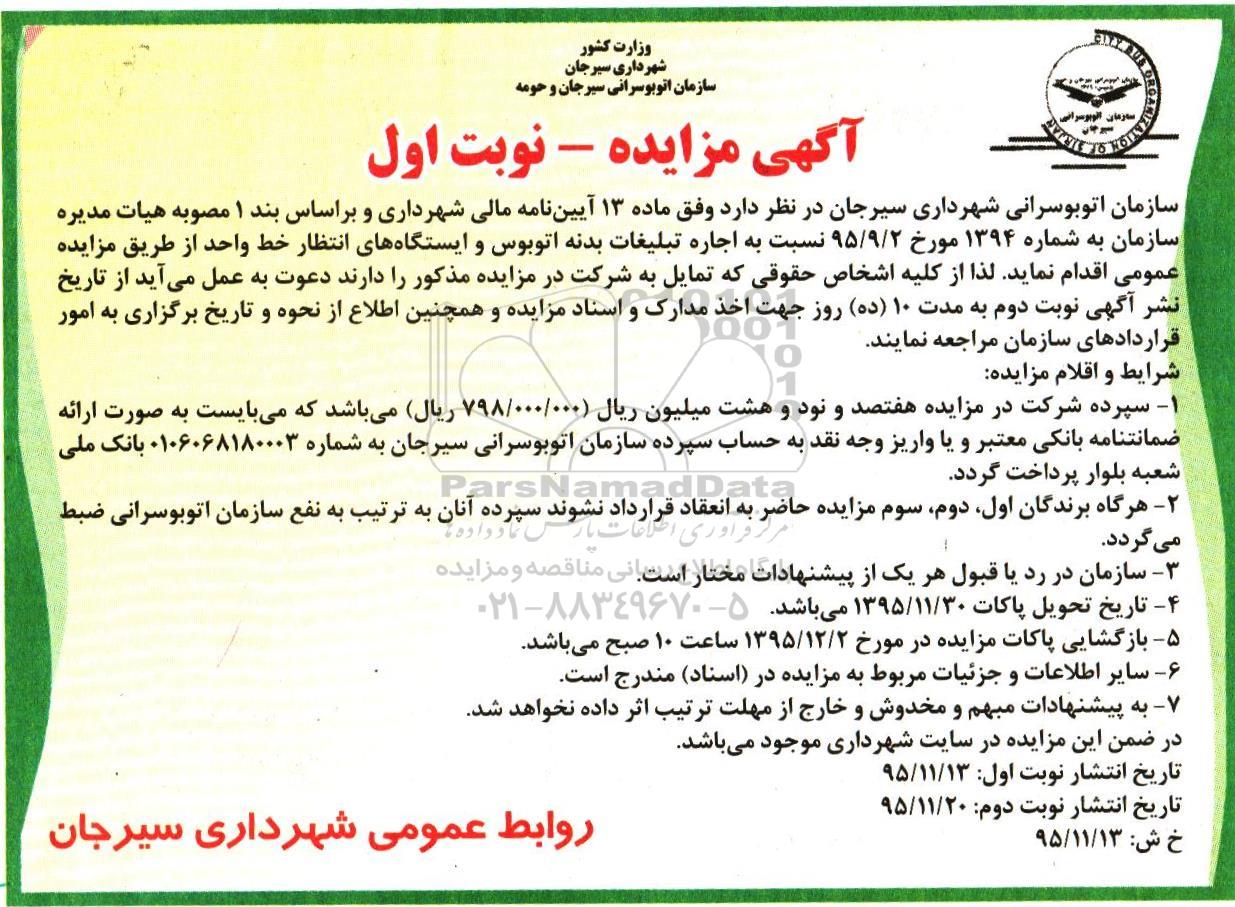 وزارت کشور
شهرداری سیرجان
سازمان اتوبوسرانی سیرجان و حومه
CITY BUS ORGANIZATION OF SIRJAN
سازمان اتوبوسرانی
سیرجان
آگهی مزایده – نوبت اول
سازمان اتوبوسرانی شهرداری سیرجان در نظر دارد وفق ماده ۱۳ آیین‌نامه مالی شهرداری و براساس بند ۱ مصوبه هیات مدیره
سازمان به شماره ۱۳۹۴ مورخ ۹۵/۹/۲ نسبت به اجاره تبلیغات بدنه اتوبوس و ایستگاه‌های انتظار خط واحد از طریق مزایده
عمومی اقدام نماید. لذا از کلیه اشخاص حقوقی که تمایل به شرکت در مزایده مذکور را دارند دعوت به عمل می‌آید از تاریخ
نشر آگهی نوبت دوم به مدت ۱۰ (ده) روز جهت اخذ مدارک و اسناد مزایده و همچنین اطلاع از نحوه و تاریخ برگزاری به امور
قراردادهای سازمان مراجعه نمایند.
شرایط و اقلام مزایده:
۱- سپرده شرکت در مزایده هفتصد و نود و هشت میلیون ریال (۷۹۸/۰۰۰/۰۰۰ ریال) می‌باشد که می‌بایست به صورت ارائه
ضمانتنامه بانکی معتبر و یا واریز وجه نقد به حساب سپرده سازمان اتوبوسرانی سیرجان به شماره ۰۱۰۶۰۶۸۱۸۰۰۰۳ بانک ملی
شعبه بلوار پرداخت گردد.
۲- هرگاه برندگان اول، دوم، سوم مزایده حاضر به انعقاد قرارداد نشوند سپرده آنان به ترتیب به نفع سازمان اتوبوسرانی ضبط
می‌گردد.
۳- سازمان در رد یا قبول هر یک از پیشنهادات مختار است.
۴- تاریخ تحویل پاکات ۱۳۹۵/۱۱/۳۰ می‌باشد.
۵- بازگشایی پاکات مزایده در مورخ ۱۳۹۵/۱۲/۲ ساعت ۱۰ صبح می‌باشد.
۶- سایر اطلاعات و جزئیات مربوط به مزایده در (اسناد) مندرج است.
۷- به پیشنهادات مبهم و مخدوش و خارج از مهلت ترتیب اثر داده نخواهد شد.
در ضمن این مزایده در سایت شهرداری موجود می‌باشد.
تاریخ انتشار نوبت اول: ۹۵/۱۱/۱۳
تاریخ انتشار نوبت دوم: ۹۵/۱۱/۲۰
خ ش: ۹۵/۱۱/۱۳
روابط عمومی شهرداری سیرجان
ParsNamadData
مرکز فرآوری اطلاعات پارس نماد داده ها
پایگاه اطلاع رسانی مناقصه و مزایده
۰۲۱-۸۸۳۴۹۶۷۰-۵